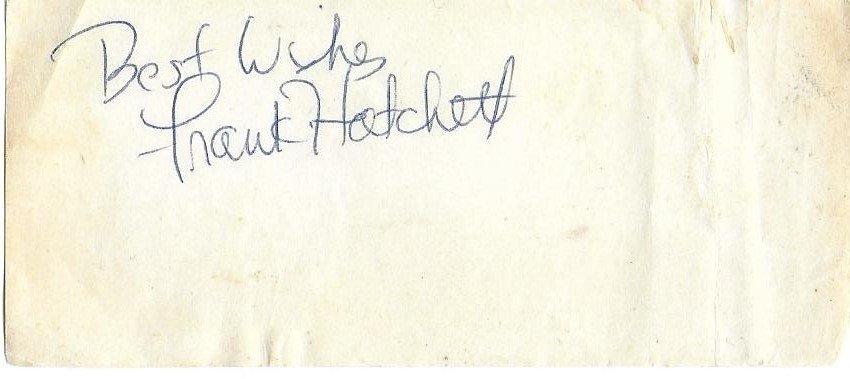 Best Wishes
Frank Hatchett